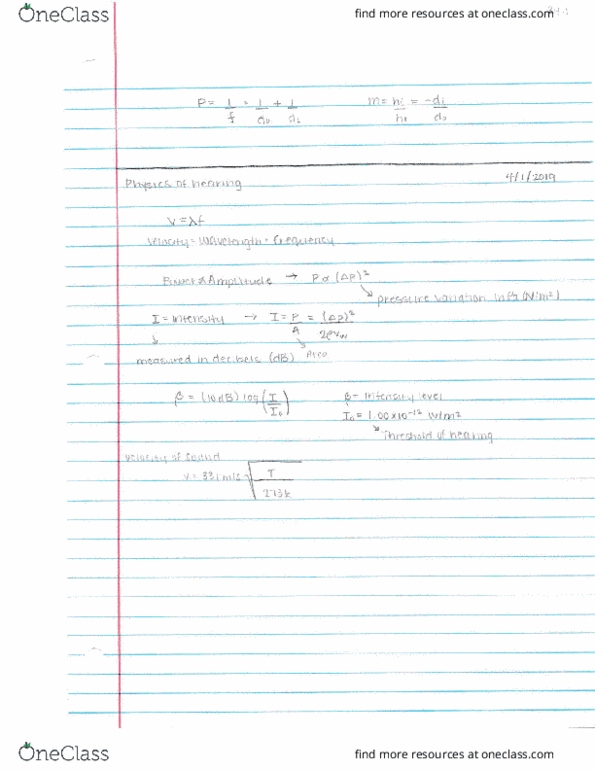 OneClass
find more resources at oneclass.com
P = 1/f = 1/do + 1/di    m = hi/ho = -di/do
Physics of hearing    4/1/2019
V = λf
velocity = wavelength · frequency
Power ∝ Amplitude → P ∝ (Δp)²
↘ pressure variation in Pa (N/m²)
I = intensity → I = P/A = (Δp)²/2ρVw
↓ ↘ Area
measured in decibels (dB)
β = (10 dB) log (I/I₀)    β - intensity level
I₀ = 1.00 x 10⁻¹² W/m²
↘ Threshold of hearing
velocity of sound
v = 331 m/s √(T/273K)
OneClass
find more resources at oneclass.com